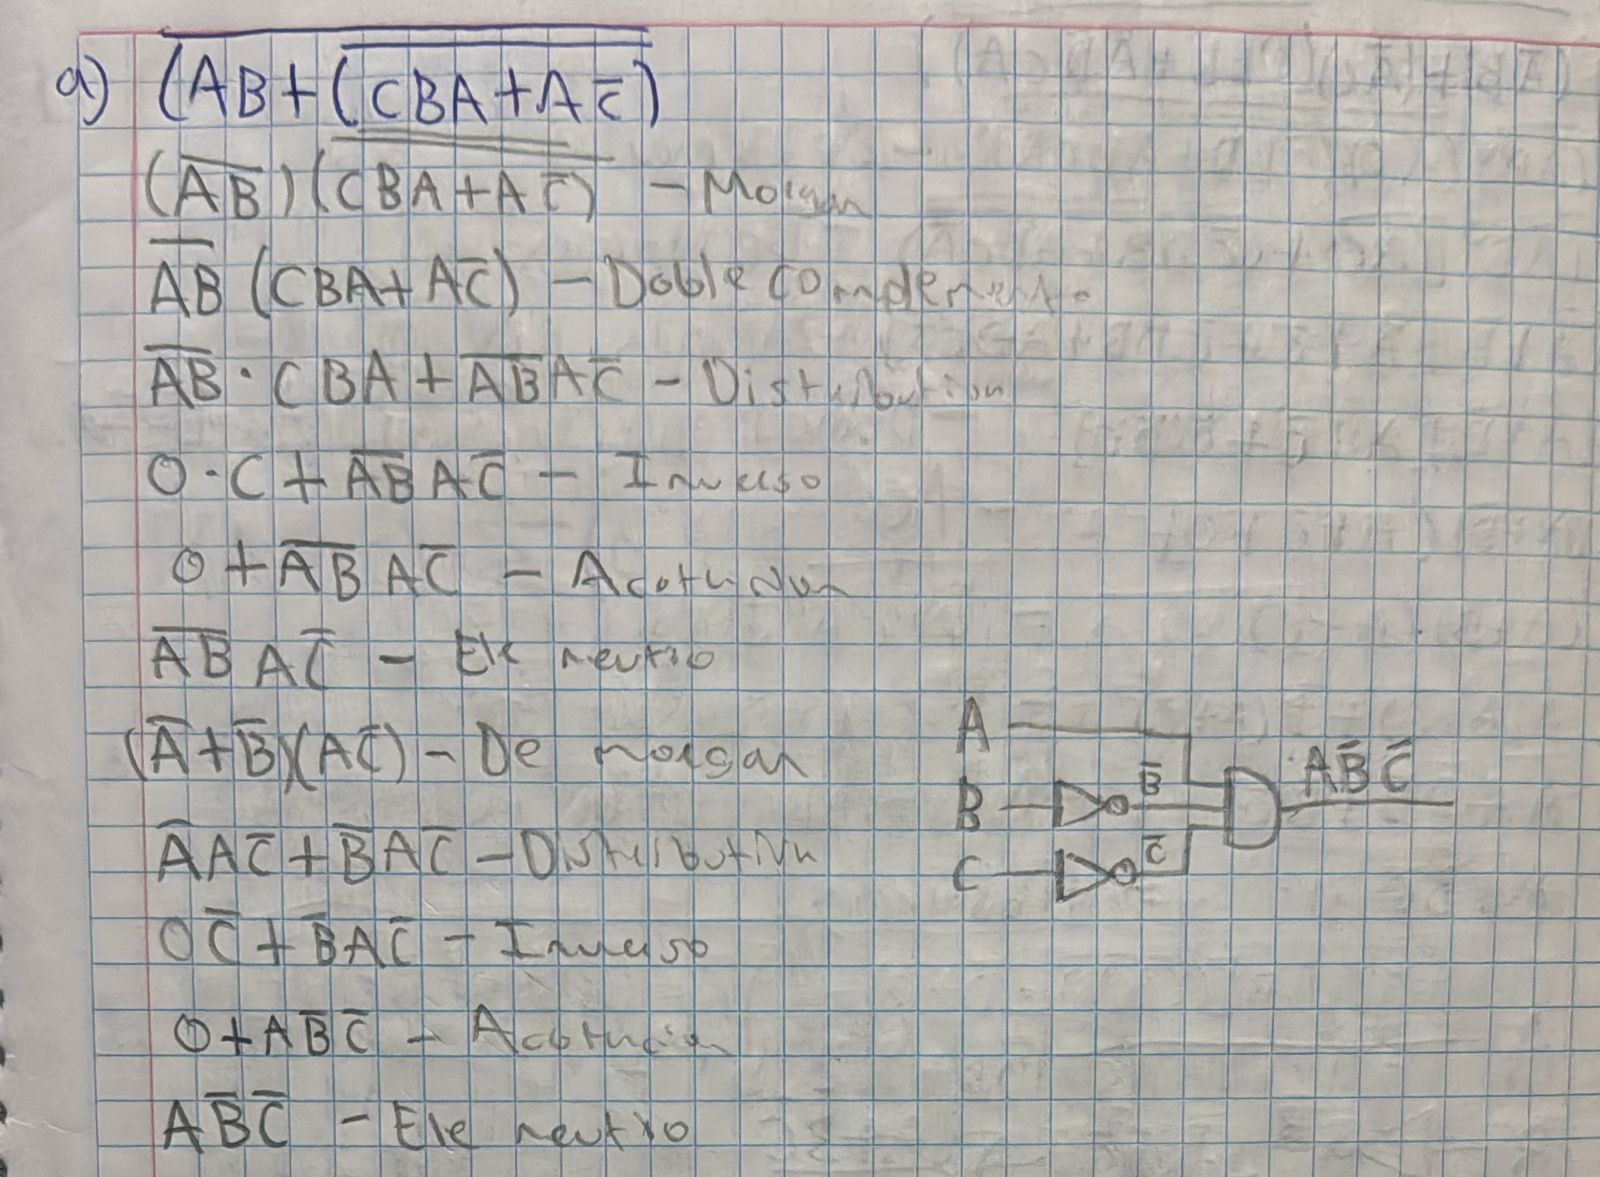 a) \overline{(AB+(\overline{CBA+A\overline{C}})}
(\overline{AB})(CBA+A\overline{C}) - Morgan
\overline{AB} (CBA+A\overline{C}) - Doble complemento
\overline{AB} · CBA + \overline{AB}A\overline{C} - Distribution
0·C + \overline{AB} A\overline{C} - Inverso
0 + \overline{AB} A\overline{C} - Acotacion
\overline{AB} A\overline{C} - Ele neutro
(\overline{A}+\overline{B})(A\overline{C}) - De morgan
\overline{A}A\overline{C} + \overline{B}A\overline{C} - Distributiva
0\overline{C} + \overline{B}A\overline{C} - Inverso
0+A\overline{B}\overline{C} - Acotacion
A\overline{B}\overline{C} - Ele neutro
A
B \overline{B} A\overline{B}\overline{C}
C \overline{C}